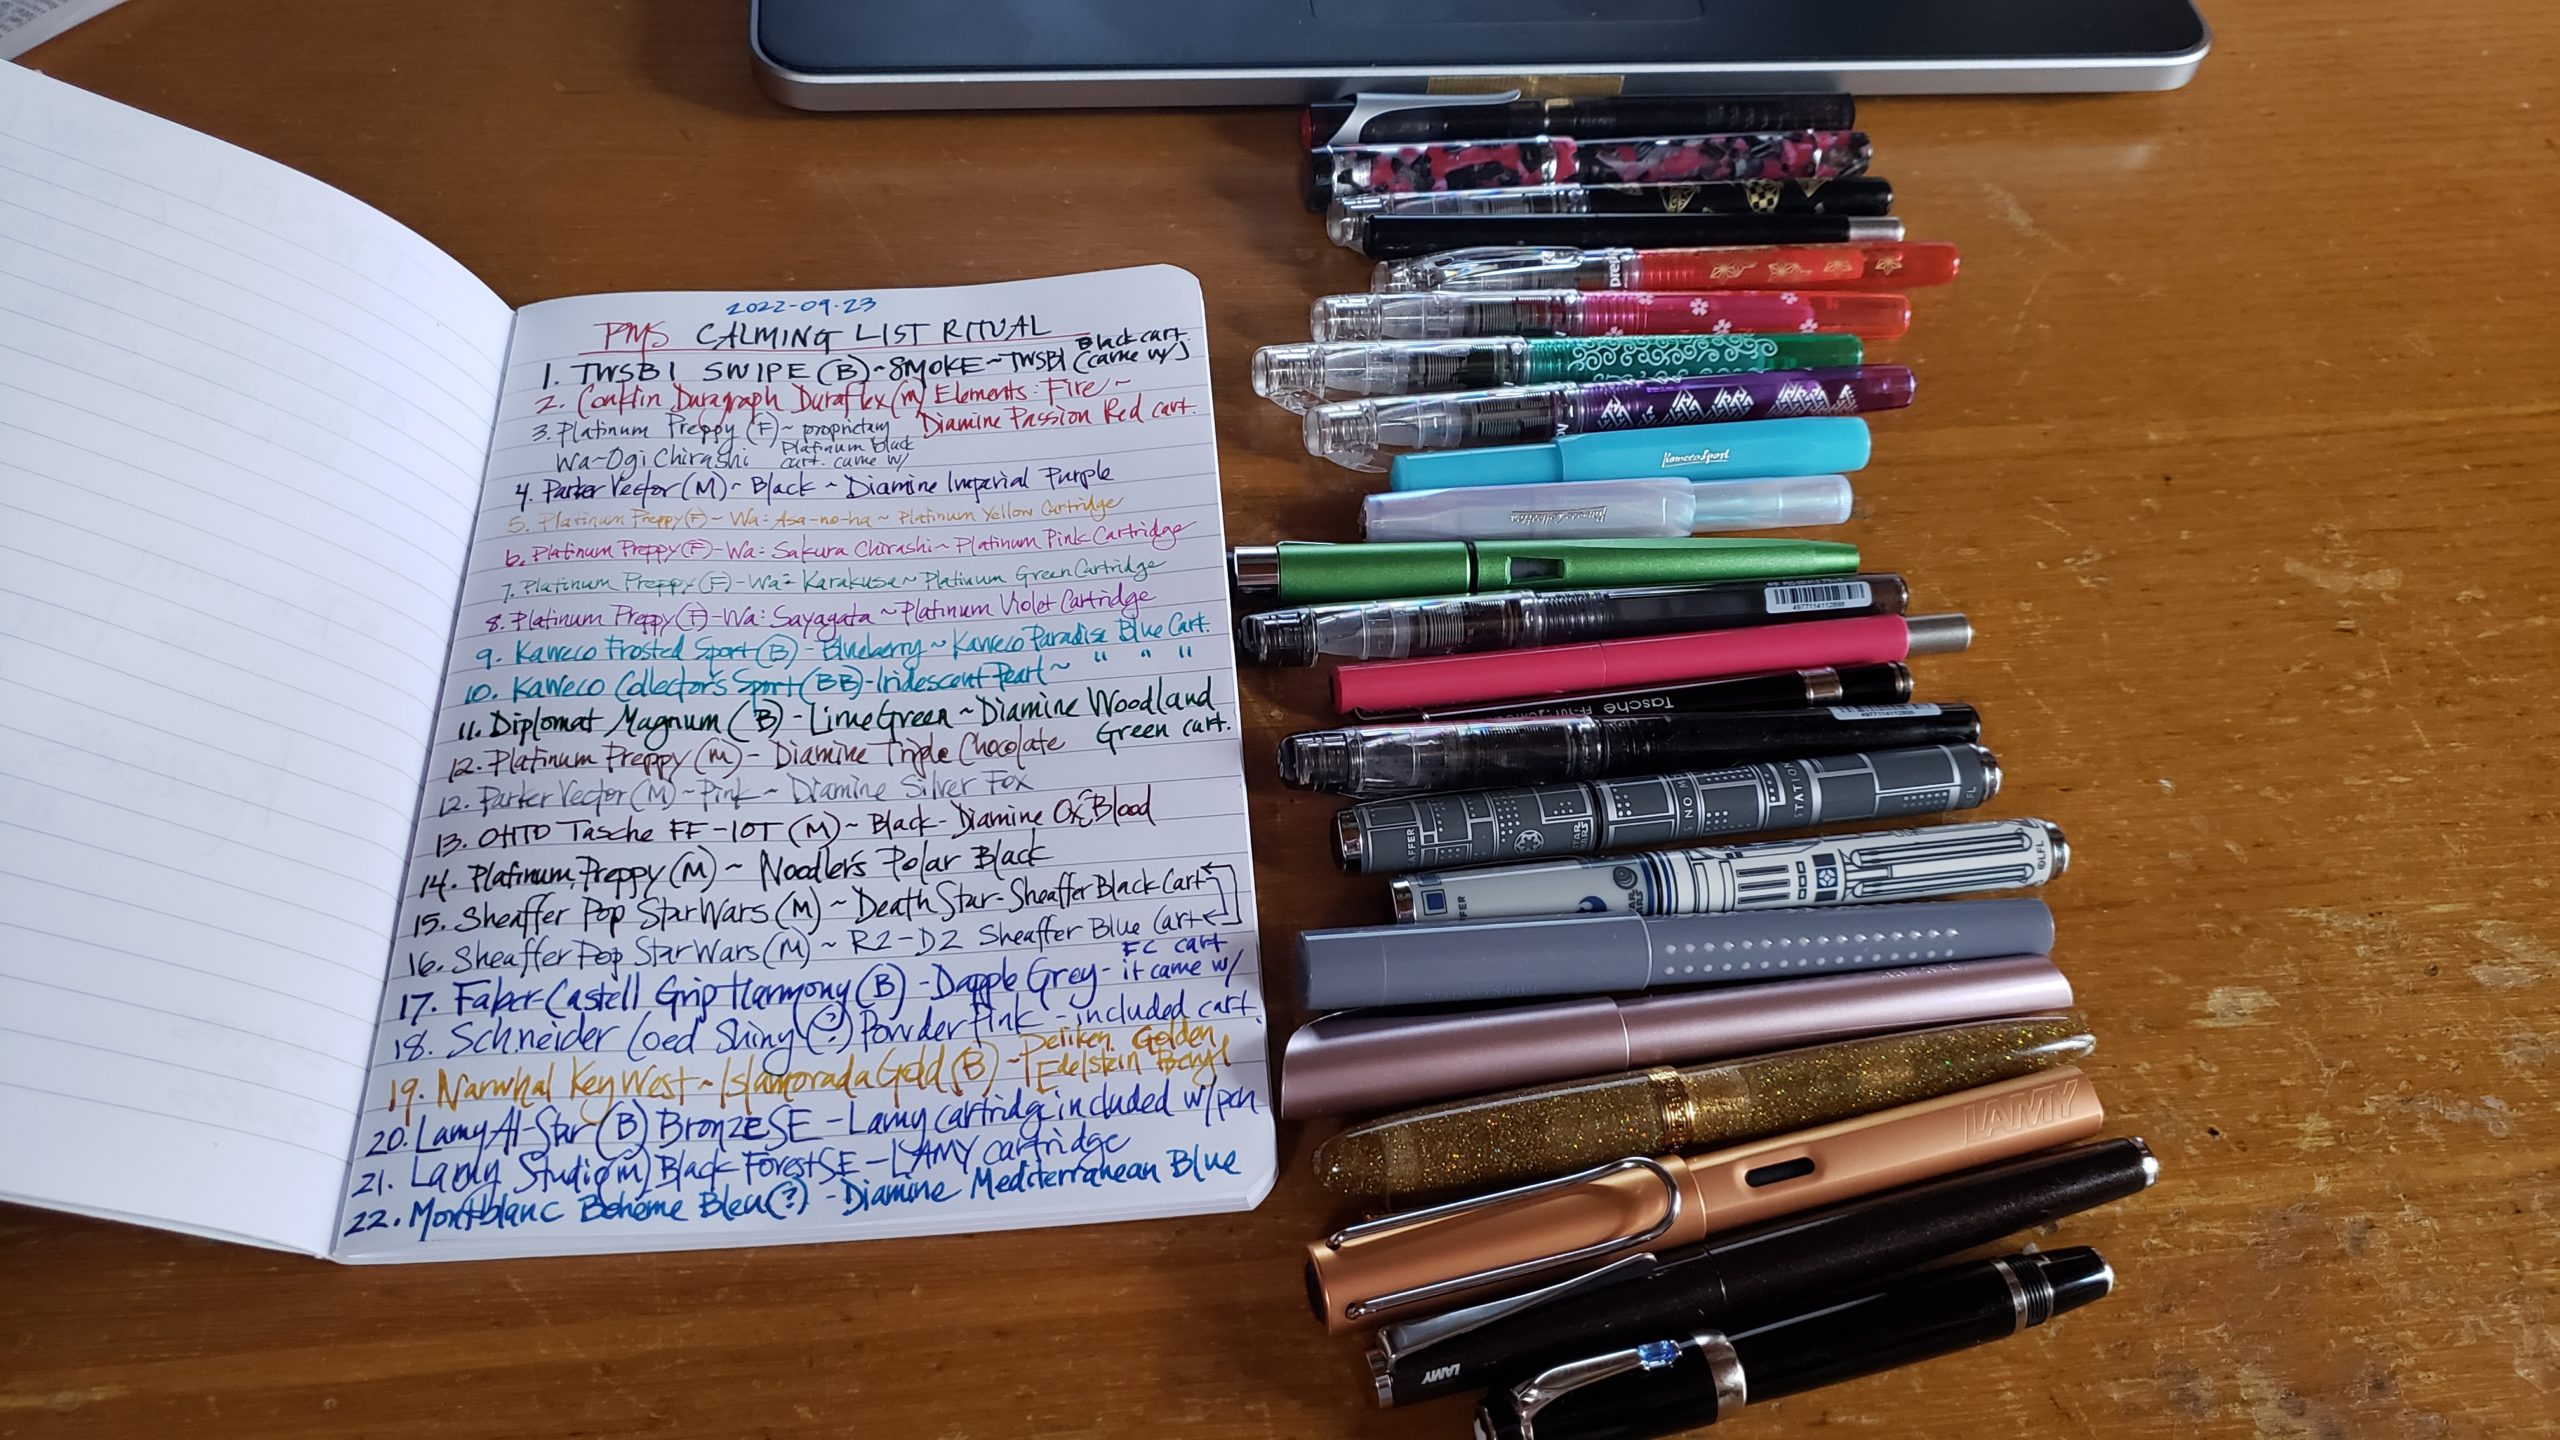 2022-09-23
PMS CALMING LIST RITUAL
1. TWSBI SWIPE (B) ~ SMOKE ~ TWSBI Black cart. (came w/)
2. Conklin Duragraph Duraflex (M) Elements: Fire ~
Diamine Passion Red cart.
3. Platinum Preppy (F) ~ proprietary
Wa~Ogi Chirashi Platinum Black
cart. came w/
4. Parker Vector (M) ~ Black ~ Diamine Imperial Purple
5. Platinum Preppy (F) - Wa: Asa-no-ha ~ Platinum Yellow Cartridge
6. Platinum Preppy (F) - Wa: Sakura Chirashi ~ Platinum Pink Cartridge
7. Platinum Preppy (F) - Wa: Karakusa ~ Platinum Green Cartridge
8. Platinum Preppy (F) - Wa: Sayagata ~ Platinum Violet Cartridge
9. Kaweco Frosted Sport (B) - Blueberry ~ Kaweco Paradise Blue Cart.
10. Kaweco Collector's Sport (BB) - Iridescent Pearl ~ " " "
11. Diplomat Magnum (B) - Lime Green ~ Diamine Woodland
Green cart.
12. Platinum Preppy (M) - Diamine Triple Chocolate
12. Parker Vector (M) ~ Pink ~ Diamine Silver Fox
13. OHTO Tasche FF-10T (M) ~ Black - Diamine Ox Blood
14. Platinum Preppy (M) ~ Noodler's Polar Black
15. Sheaffer Pop Star Wars (M) ~ Death Star - Sheaffer Black Cart
16. Sheaffer Pop Star Wars (M) ~ R2-D2 Sheaffer Blue Cart
17. Faber-Castell Grip Harmony (B) - Dapple Grey - FC cart it came w/
18. Schneider Coed Shiny (?) Powder Pink - included cart.
19. Narwhal Key West ~ Islamorada Gold (B) ~ Pelikan Golden
Edelstein Beryl
20. Lamy Al-Star (B) Bronze SE - Lamy cartridge included w/pen
21. Lamy Studio (M) Black Forest SE - LAMY cartridge
22. Montblanc Bohème Bleu (?) - Diamine Mediterranean Blue
prep
Kaweco Sport
Kaweco Collection
4977114112898
Tasche FF-10T
4977114112898
AFFER
STAR WARS
S NO M
STATION
FL
FFER
STAR WARS
©LFL
LAMY
LAMY